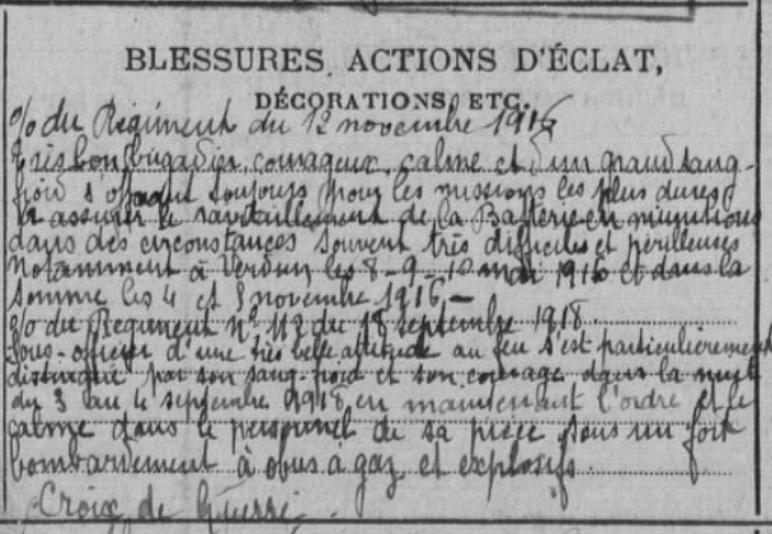 BLESSURES, ACTIONS D'ÉCLAT,
DÉCORATIONS, ETC.
o/o du Régiment du 12 novembre 1916
Très bon brigadier, courageux, calme et d'un grand sang-
froid s'offrant toujours pour les missions les plus dures
a assuré le ravitaillement de la Batterie en munitions
dans des circonstances souvent très difficiles et périlleuses
Notamment à Verdun, les 8-9-10 mai 1916 et dans la
Somme les 4 et 5 novembre 1916.-
o/o du Régiment Nº 112 du 18 septembre 1918.
Sous-officier d'une très belle attitude au feu s'est particulièrement
distingué par son sang-froid et son courage dans la nuit
du 3 au 4 septembre 1918 en maintenant l'ordre et le
calme dans le personnel de sa pièce sous un fort
bombardement à obus à gaz et explosifs.
Croix de Guerre.